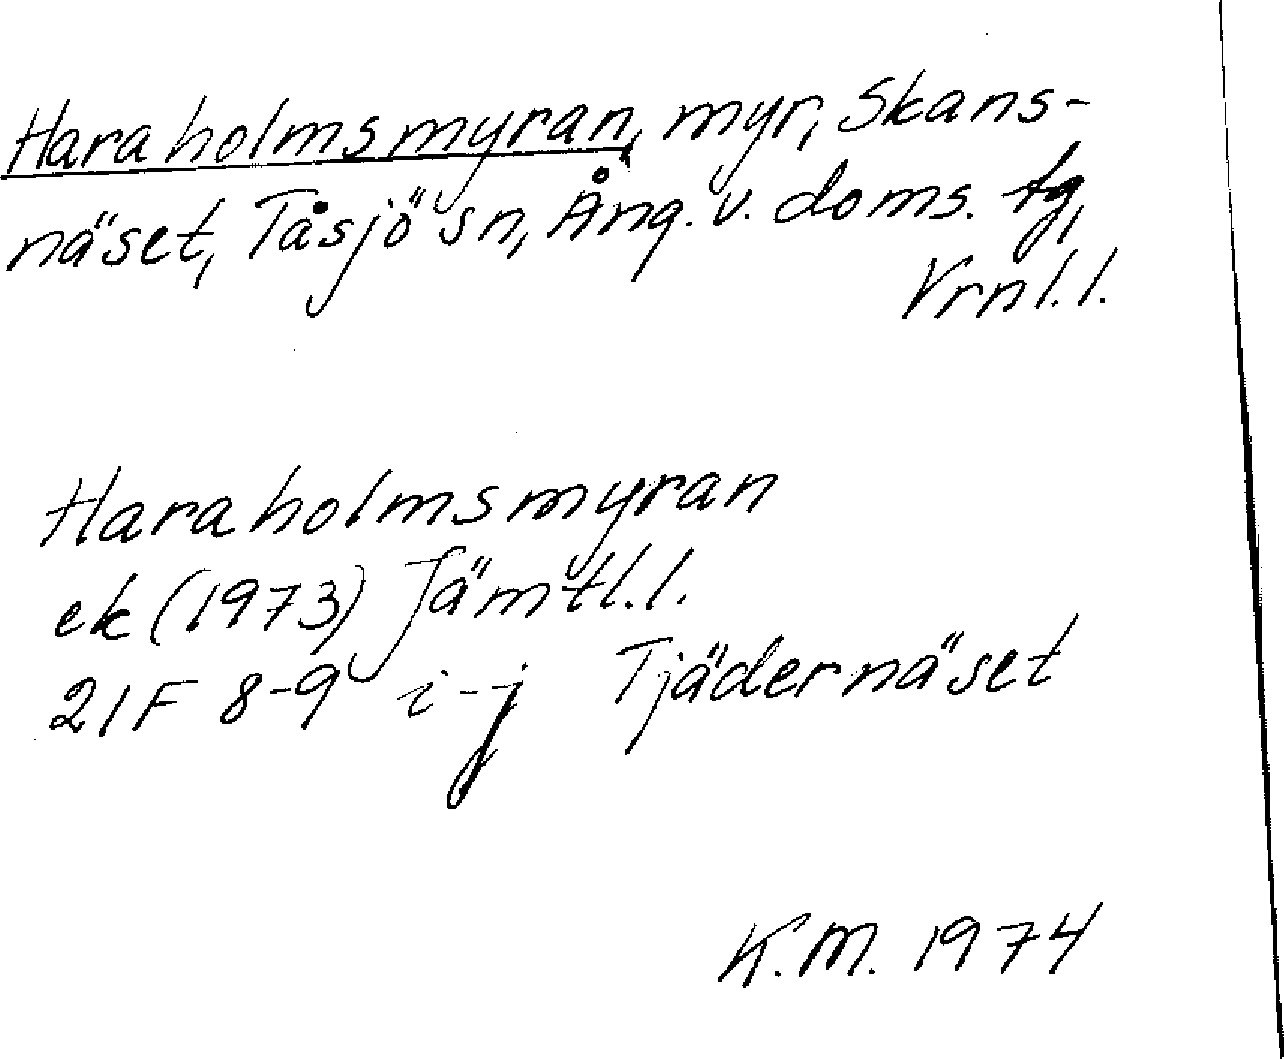 Haraholmsmyran, myr, Skans-
näset, Tåsjö sn, Ång. v. doms. tg,
Vrnl. l.
Haraholmsmyran
ek (1973) Jämtl. l.
21F 8-9 i-j Tjädernäset
K.M. 1974